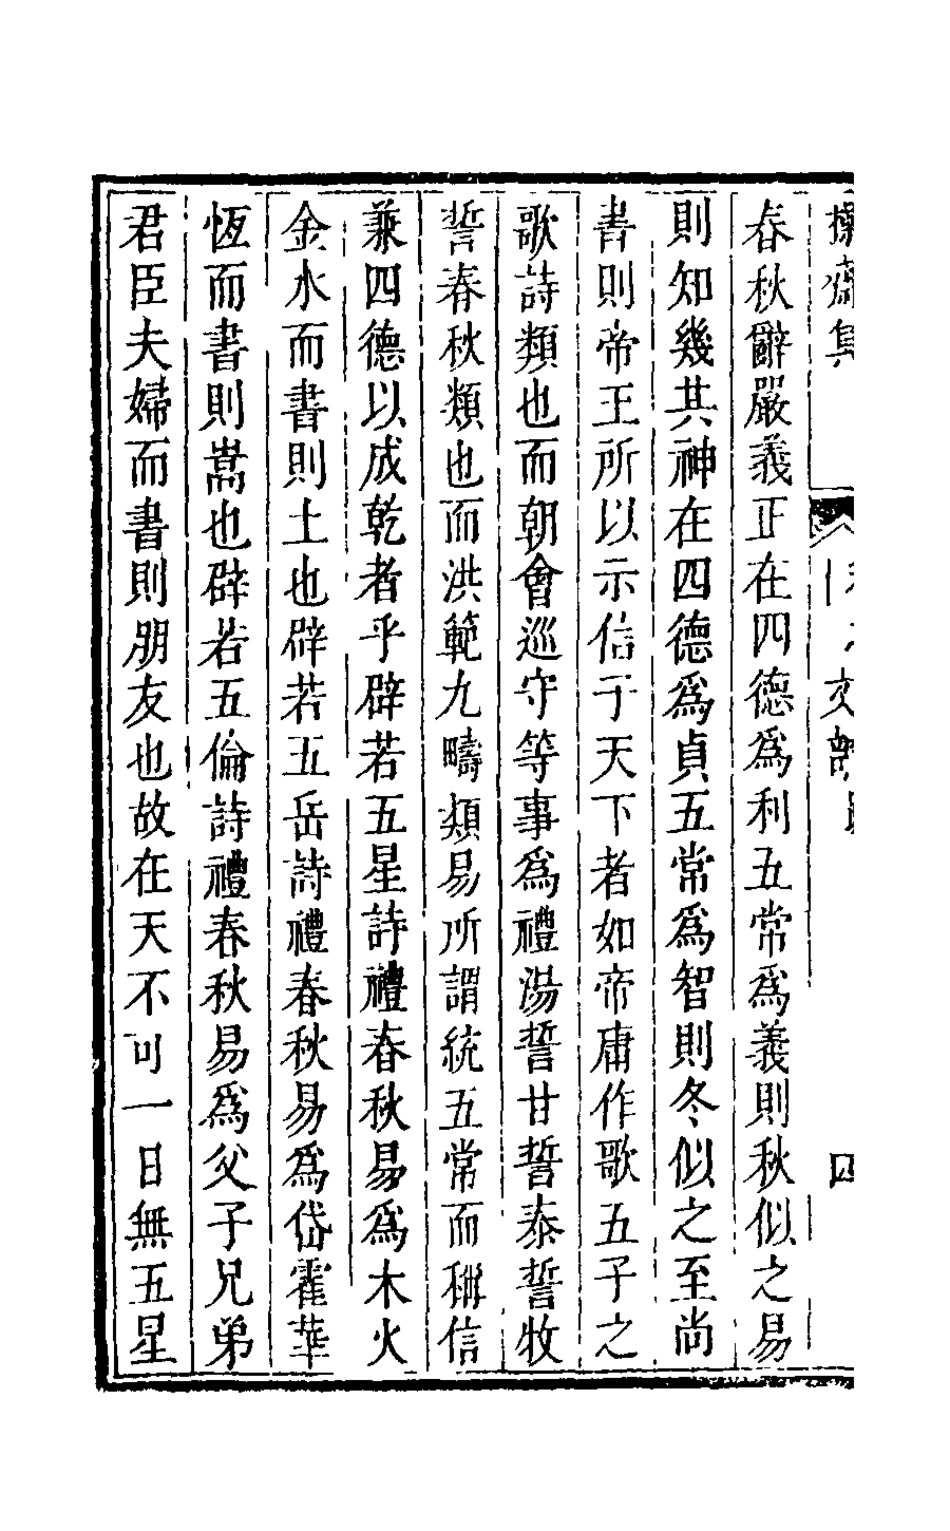 齋集
文部
四
春秋辭嚴義正在四德爲利五常爲義則秋似之易
則知幾其神在四德爲貞五常爲智則冬似之至尚
書則帝王所以示信于天下者如帝庸作歌五子之
歌詩類也而朝會巡守等事爲禮湯誓甘誓泰誓牧
誓春秋類也而洪範九疇類易所謂統五常而稱信
兼四德以成乾者乎辟若五星詩禮春秋易爲木火
金水而書則土也辟若五岳詩禮春秋易爲岱霍華
恆而書則嵩也辟若五倫詩禮春秋易爲父子兄弟
君臣夫婦而書則朋友也故在天不可一日無五星